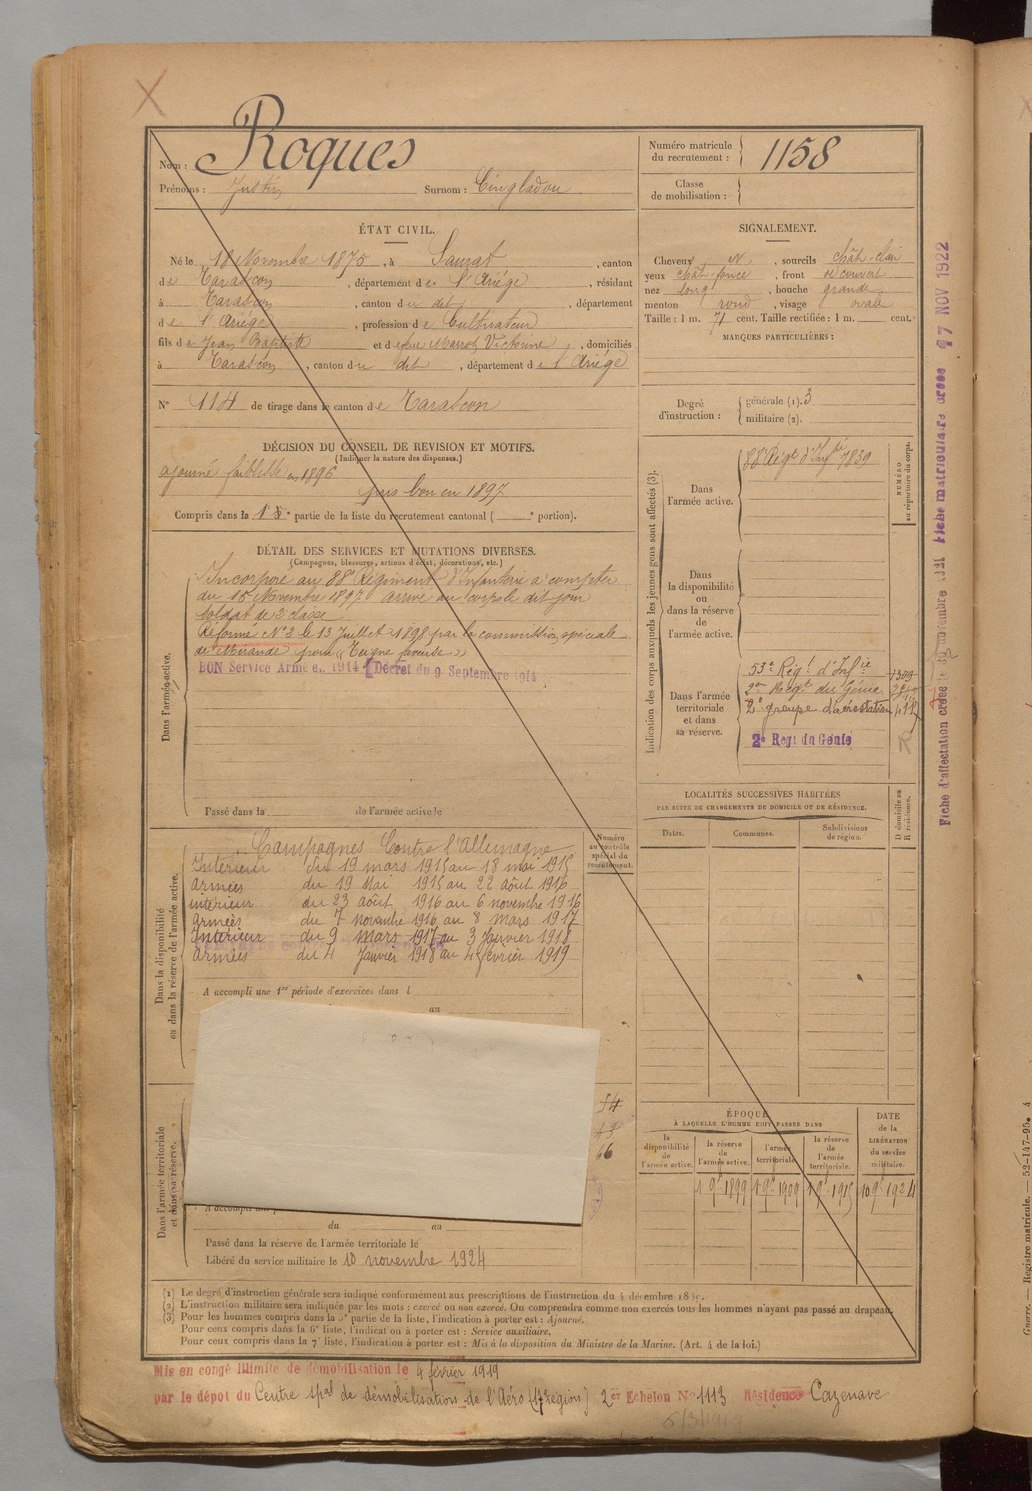 Nom : Roques
Prénoms : Justin Surnom : Cingladou
Numéro matricule du recrutement : 1158
Classe de mobilisation :
ÉTAT CIVIL.
Né le 18 Novembre 1875, à Saurat, canton
de Tarascon, département de l'Ariège, résidant
à Tarascon, canton du dit, département
de l'Ariège, profession de Cultivateur
fils de Jean Baptiste et de Victorine, domiciliés
à Tarascon, canton du dit, département de l'Ariège
N° 114 de tirage dans le canton de Tarascon
SIGNALEMENT.
Cheveux N, sourcils chât. clair
yeux chât. foncé, front découvert
nez long, bouche grande
menton rond, visage ovale
Taille : 1 m. 71 cent. Taille rectifiée : 1 m. cent.
MARQUES PARTICULIÈRES :
Degré d'instruction : générale (1). 3
militaire (2).
DÉCISION DU CONSEIL DE REVISION ET MOTIFS.
(Indiquer la nature des dispenses.)
ajourné faiblesse en 1896
puis bon en 1897
Compris dans la partie de la liste du recrutement cantonal ( e portion).
DÉTAIL DES SERVICES ET MUTATIONS DIVERSES.
(Campagnes, blessures, actions d'éclat, décorations, etc.)
Dans l'armée active.
Incorporé au 88e Régiment d'Infanterie à compter
du 15 Novembre 1897. Arrivé au corps le dit jour
soldat de 2e classe
Réformé N° 2 le 13 Juillet 1898 par la commission spéciale
de Mirande pour « Teigne faveuse »
BON Service Armé en 1914 (Décret du 9 Septembre 1914
Passé dans la de l'armée active le
Indication des corps auxquels les jeunes gens sont affectés (3).
NUMÉRO au répertoire du corps.
Dans l'armée active.
88e Régt d'Infie 7839
Dans la disponibilité ou dans la réserve de l'armée active.
Dans l'armée territoriale et dans sa réserve.
53e Régt d'Infie 1309
2e Régt du Génie
2e groupe d'aérostation
2e Régt du Génie
LOCALITÉS SUCCESSIVES HABITÉES
PAR SUITE DE CHANGEMENTS DE DOMICILE OU DE RÉSIDENCE.
Dates. Communes. Subdivisions de région. D domicile ou R résidence.
Dans la disponibilité ou dans la réserve de l'armée active.
Numéro au contrôle spécial du recrutement.
Campagnes Contre l'Allemagne
Intérieur du 19 mars 1915 au 18 mai 1915
armées du 19 Mai 1915 au 22 août 1916
intérieur du 23 août 1916 au 6 novembre 1916
Armées du 7 novembre 1916 au 8 Mars 1917
Intérieur du 9 mars 1917 au 3 Janvier 1918
armées du 4 Janvier 1918 au 4 février 1919
A accompli une 1re période d'exercices dans l
au
54
66
Dans l'armée territoriale et dans sa réserve.
A accompli une
du au
Passé dans la réserve de l'armée territoriale le
Libéré du service militaire le 10 novembre 1924
ÉPOQUE À LAQUELLE L'HOMME DOIT PASSER DANS
la disponibilité de l'armée active. la réserve de l'armée active. l'armée territoriale. la réserve de l'armée territoriale. DATE de la LIBÉRATION du service militaire.
1 9e 1899 1 9e 1909 1 9e 1915 10 9e 1924
(1) Le degré d'instruction générale sera indiqué conformément aux prescriptions de l'instruction du 4 décembre
(2) L'instruction militaire sera indiquée par les mots : exercé ou non exercé. On comprendra comme non exercés tous les hommes n'ayant pas passé au drapeau.
(3) Pour les hommes compris dans la 5e partie de la liste, l'indication à porter est : Ajourné.
Pour ceux compris dans la 6e liste, l'indication à porter est : Service auxiliaire.
Pour ceux compris dans la 7e liste, l'indication à porter est : Mis à la disposition du Ministre de la Marine. (Art. 4 de la loi.)
Mis en congé illimité de démobilisation le 4 février 1919
par le dépôt du Centre spal de démobilisation de l'Aéro (17e région) 2er Echelon N° 1113 Résidence Cazenave
Fiche d'affectation créée le 30 novembre 1921 Fiche matriculaire créée 17 NOV 1922
Guerre. — Registre matricule. — 52-147-95. 4